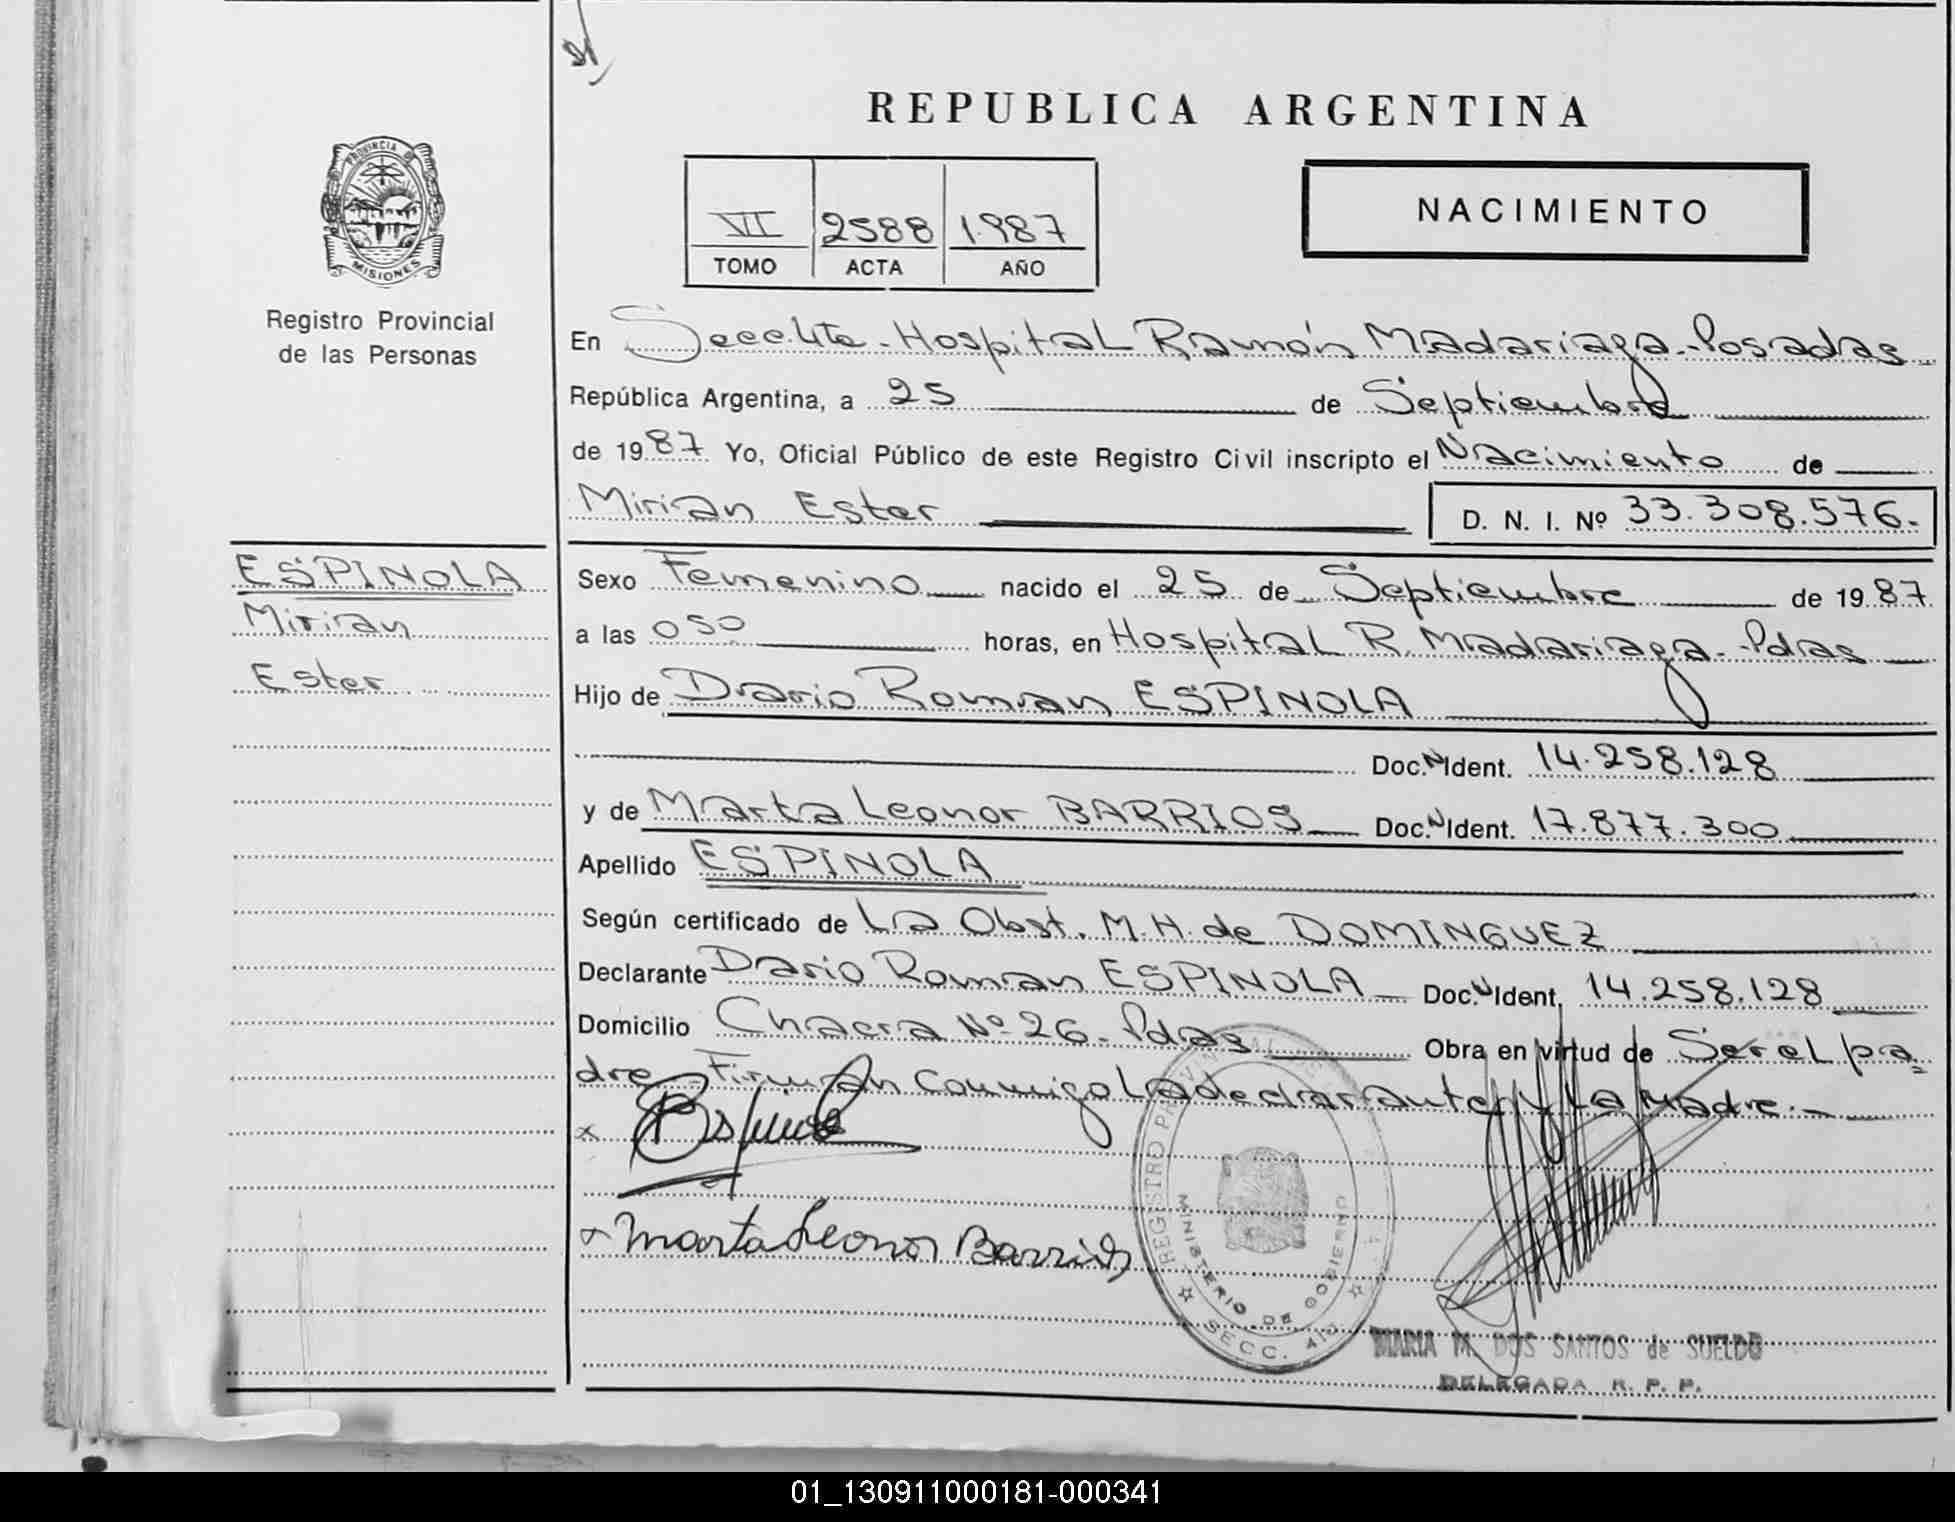 REPUBLICA ARGENTINA
PROVINCIA DE
MISIONES
Registro Provincial
de las Personas
VII 2588 1.987
TOMO ACTA AÑO
NACIMIENTO
En Secc. 4ta - Hospital Ramón Madariaga - Posadas
República Argentina, a 25 de Septiembre
de 1987 Yo, Oficial Público de este Registro Civil inscripto el Nacimiento de
Mirian Ester D. N. I. Nº 33.308.576.-
ESPINOLA
Mirian
Ester
Sexo Femenino nacido el 25 de Septiembre de 1987
a las 050 horas, en Hospital R. Madariaga - Pdas
Hijo de Dario Roman ESPINOLA
Doc.N Ident. 14.258.128
y de Marta Leonor BARRIOS Doc.N Ident. 17.877.300
Apellido ESPINOLA
Según certificado de La Obst. M.H. de DOMINGUEZ
Declarante Dario Roman ESPINOLA Doc.N Ident. 14.258.128
Domicilio Chacra Nº 26 - Pdas Obra en virtud de Ser el pa=
dre - Firman conmigo La declarante y La Madre.-
x Espinola
x Marta Leonor Barrios
REGISTRO PROVINCIAL DE LAS
MINISTERIO DE GOBIERNO
SECC. 4ta
MARIA M. DOS SANTOS de SUELDO
DELEGADA R. P. P.
01_130911000181-000341